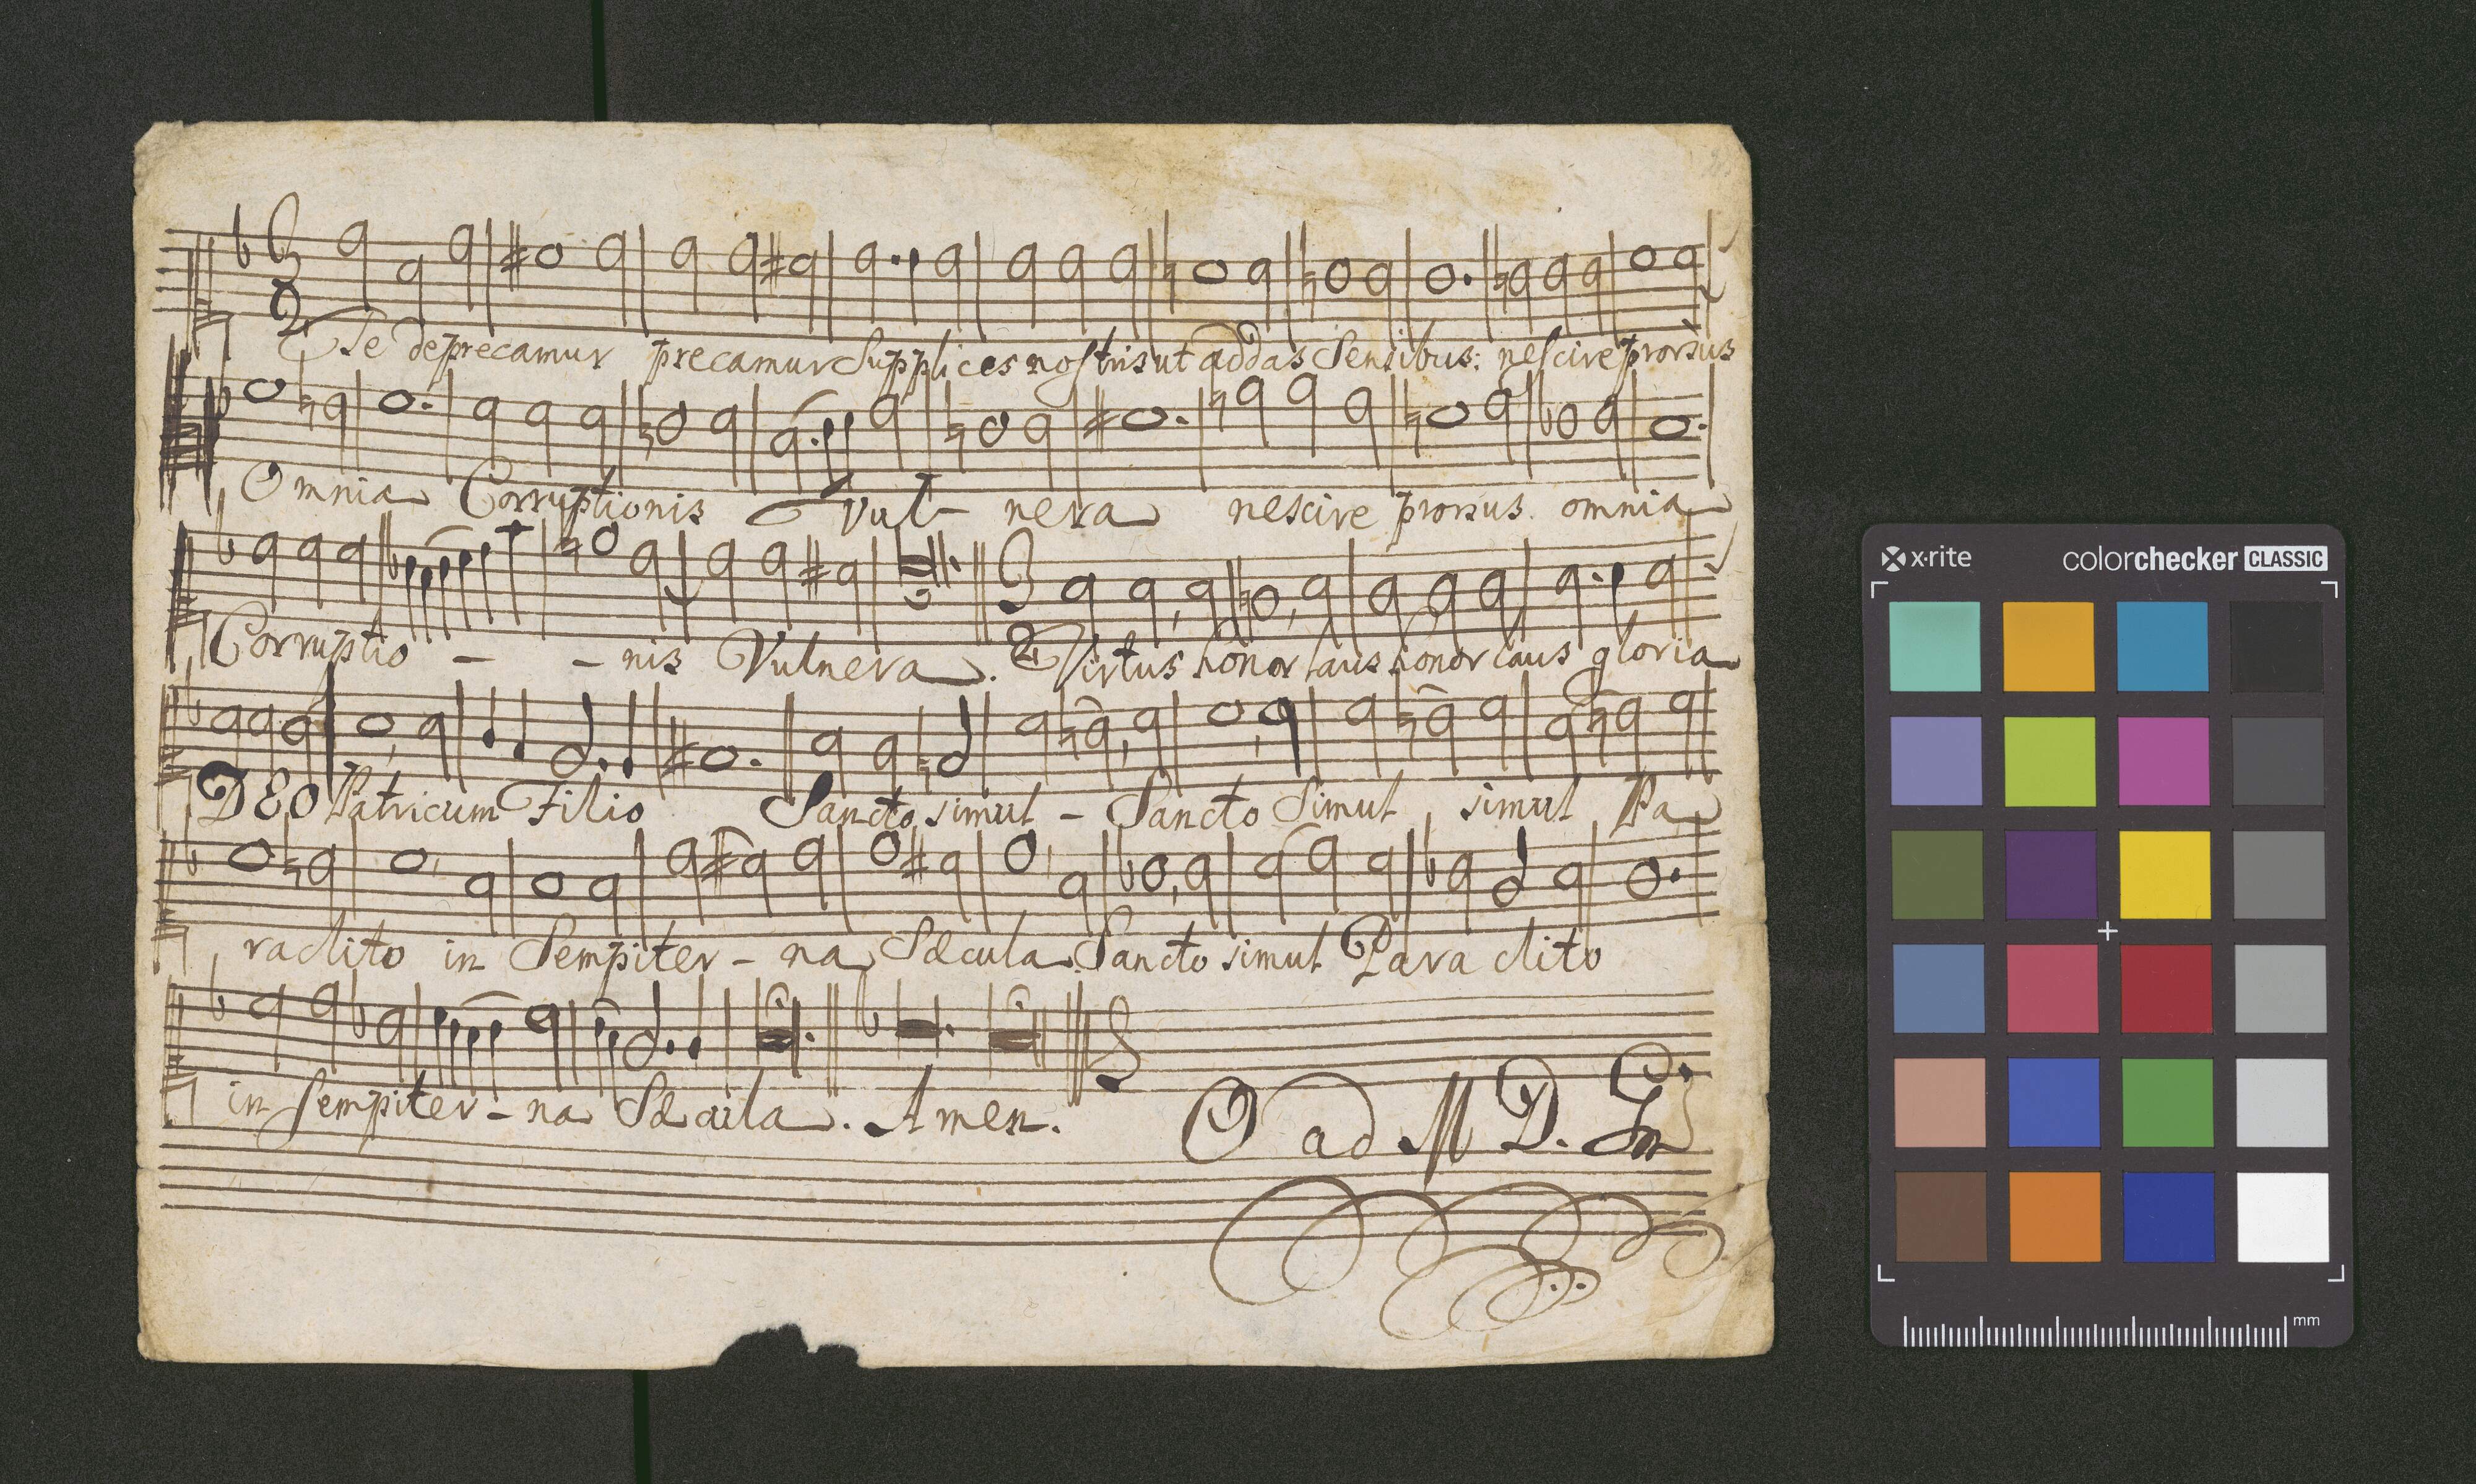 Te deprecamur precamur Supplices nostris ut addas Sensibus: nescire prorsus
Omnia Corruptionis Vul- nera nescire prorsus. omnia
Corruptio - - nis Vulnera. Virtus honor laus honor laus gloria
DEO Patri cum Filio Sancto simul - Sancto Simul simul Pa
raclito in Sempiter - na Sæcula. Sancto simul Para clito
in sempiter - na Sæcula. Amen.
O ad M D.
x·rite colorchecker CLASSIC
mm